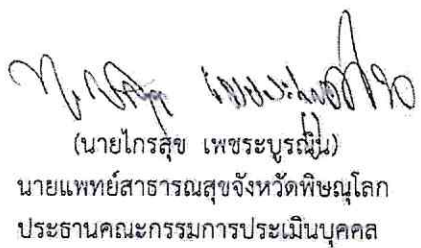 (นายไกรสุข เพชระบูรณิน)
นายแพทย์สาธารณสุขจังหวัดพิษณุโลก
ประธานคณะกรรมการประเมินบุคคล